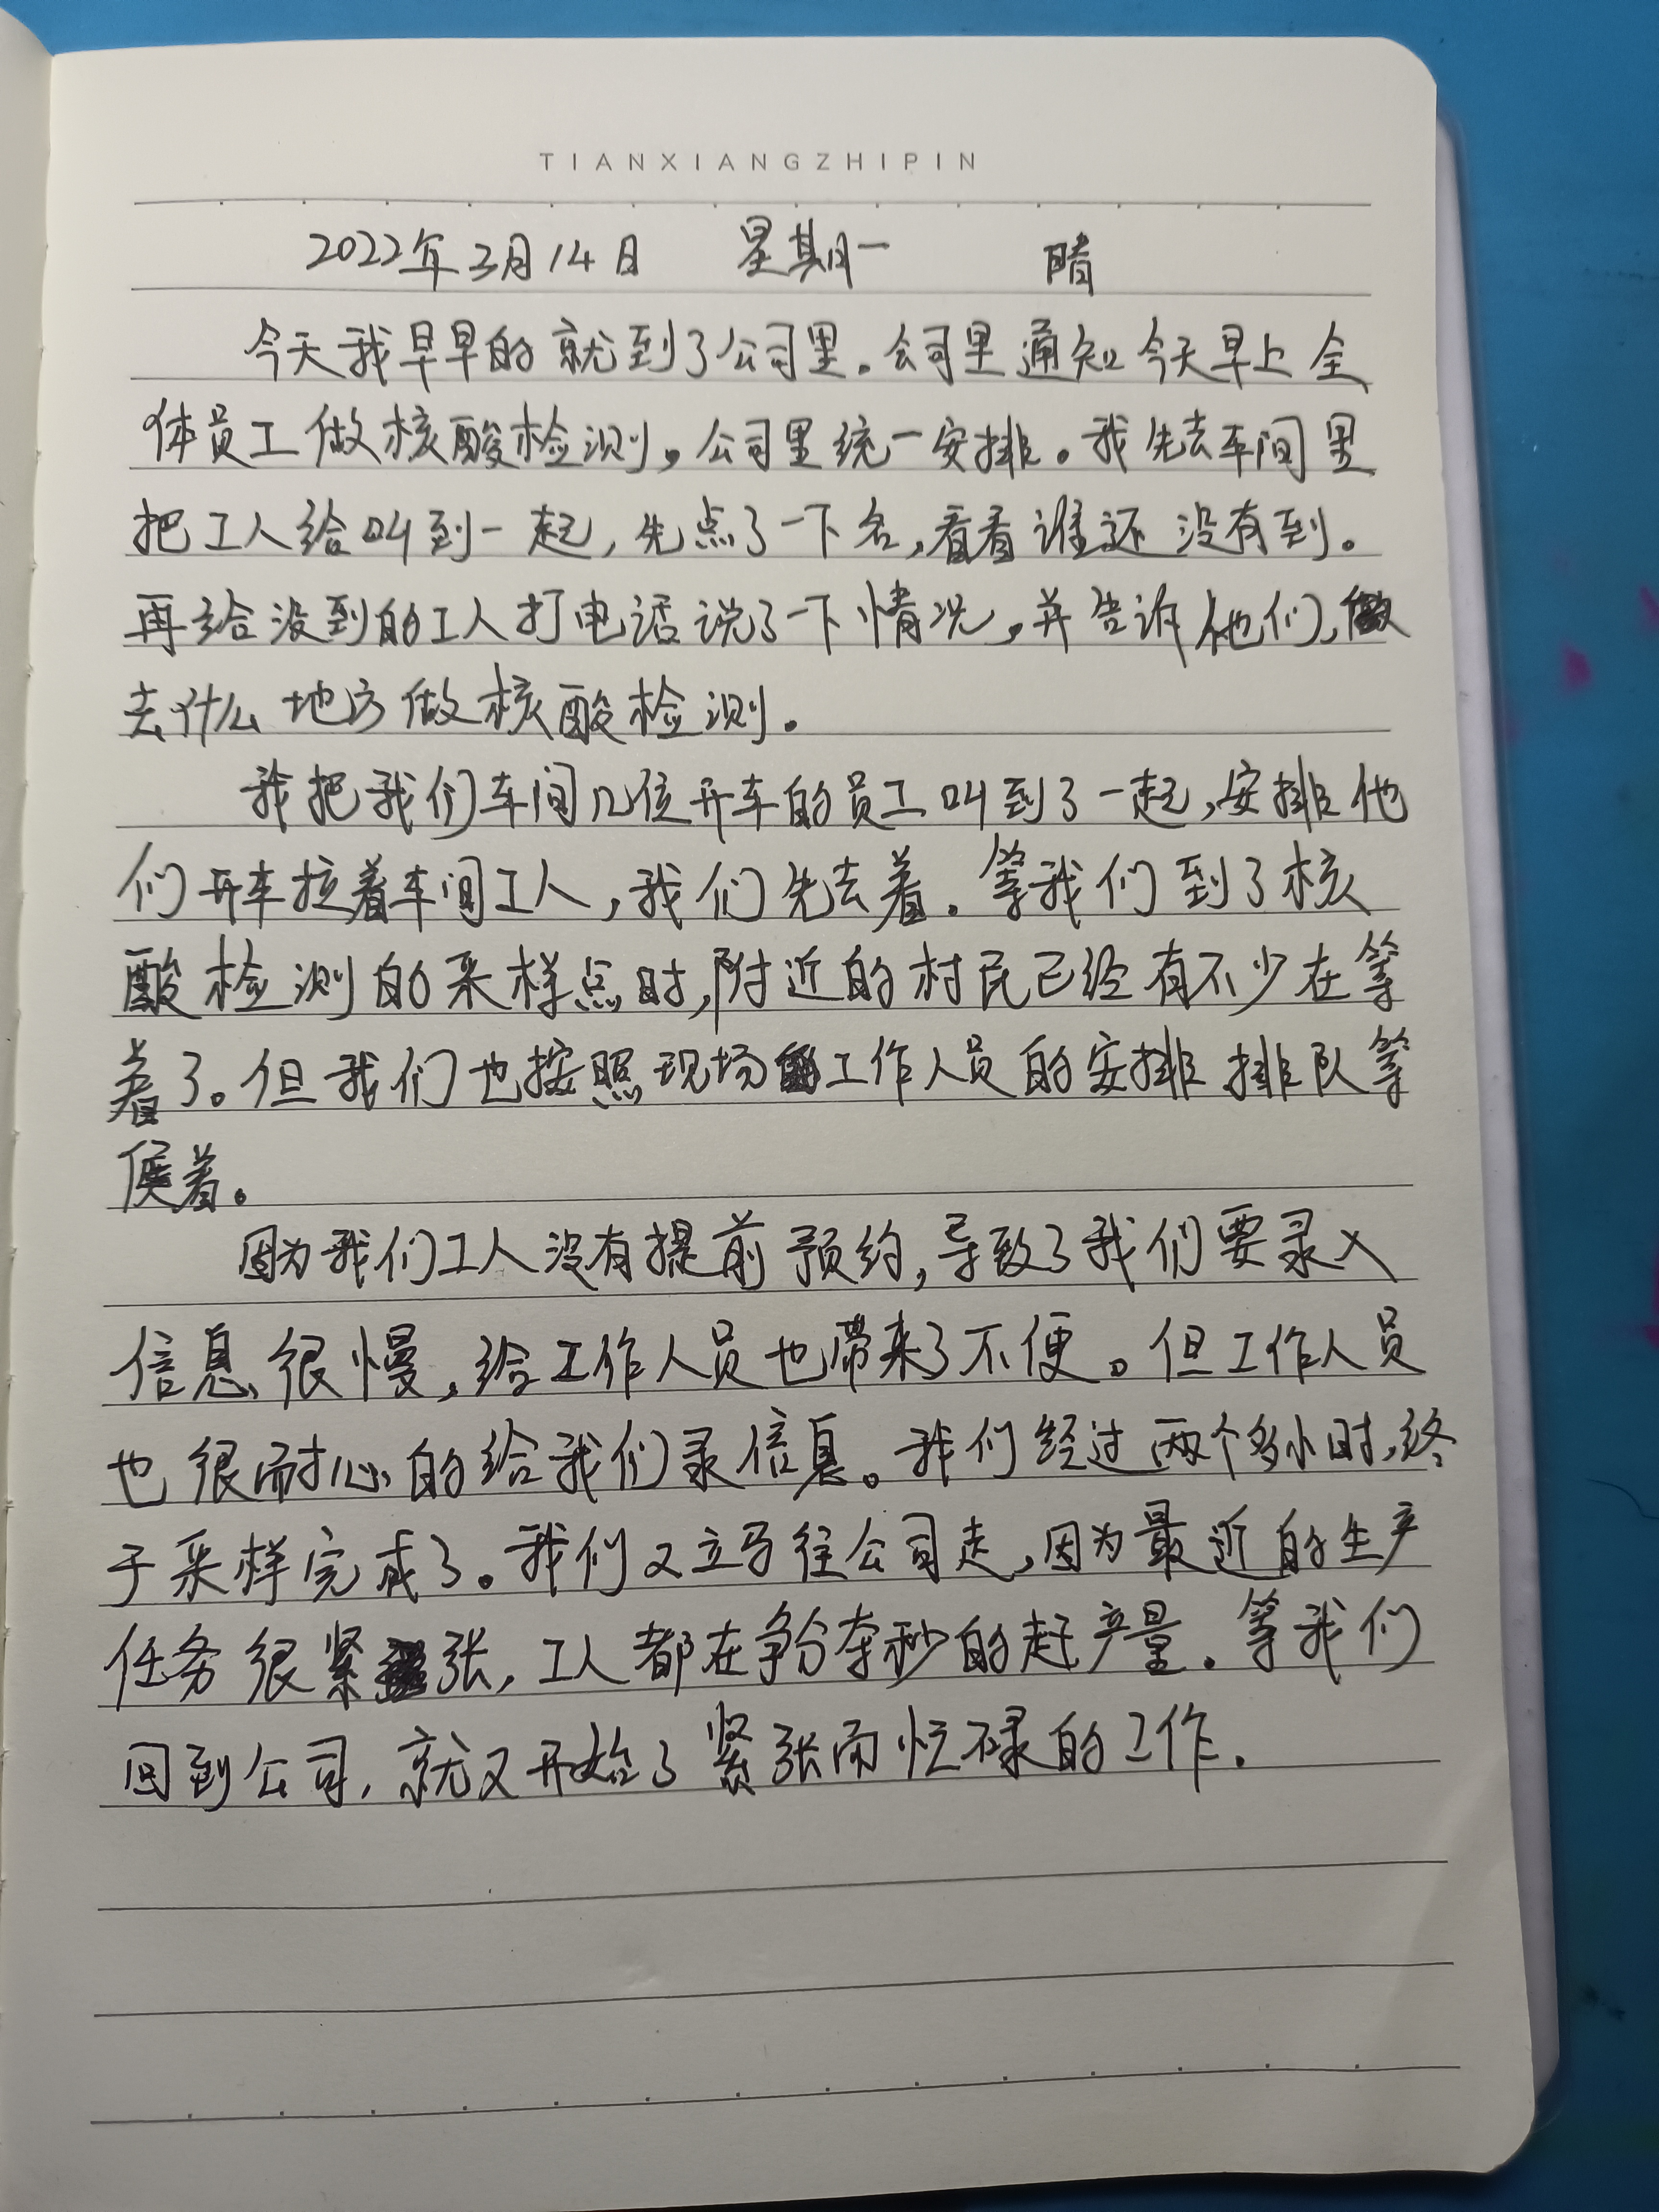 TIANXIANGZHIPIN
2022年3月14日 星期一 晴
今天我早早的就到了公司里。公司里通知今天早上全
体员工做核酸检测。公司里统一安排。我先去车间里
把工人给叫到一起,先点了一下名,看看谁还没有到。
再给没到的工人打电话说了一下情况,并告诉他们,
去什么地方做核酸检测。
我把我们车间几位开车的员工叫到了一起,安排他
们开车拉着车间工人,我们先去着。等我们到了核
酸检测的采样点时,附近的村民已经有不少在等
着了。但我们也按照现场工作人员的安排排队等
候着。
因为我们工人没有提前预约,导致了我们要录入
信息很慢,给工作人员也带来了不便。但工作人员
也很耐心的给我们录信息。我们经过两个多小时,终
于采样完成了。我们又立马往公司走,因为最近的生产
任务很紧张,工人都在争分夺秒的赶产量。等我们
回到公司,就又开始了紧张而忙碌的工作.